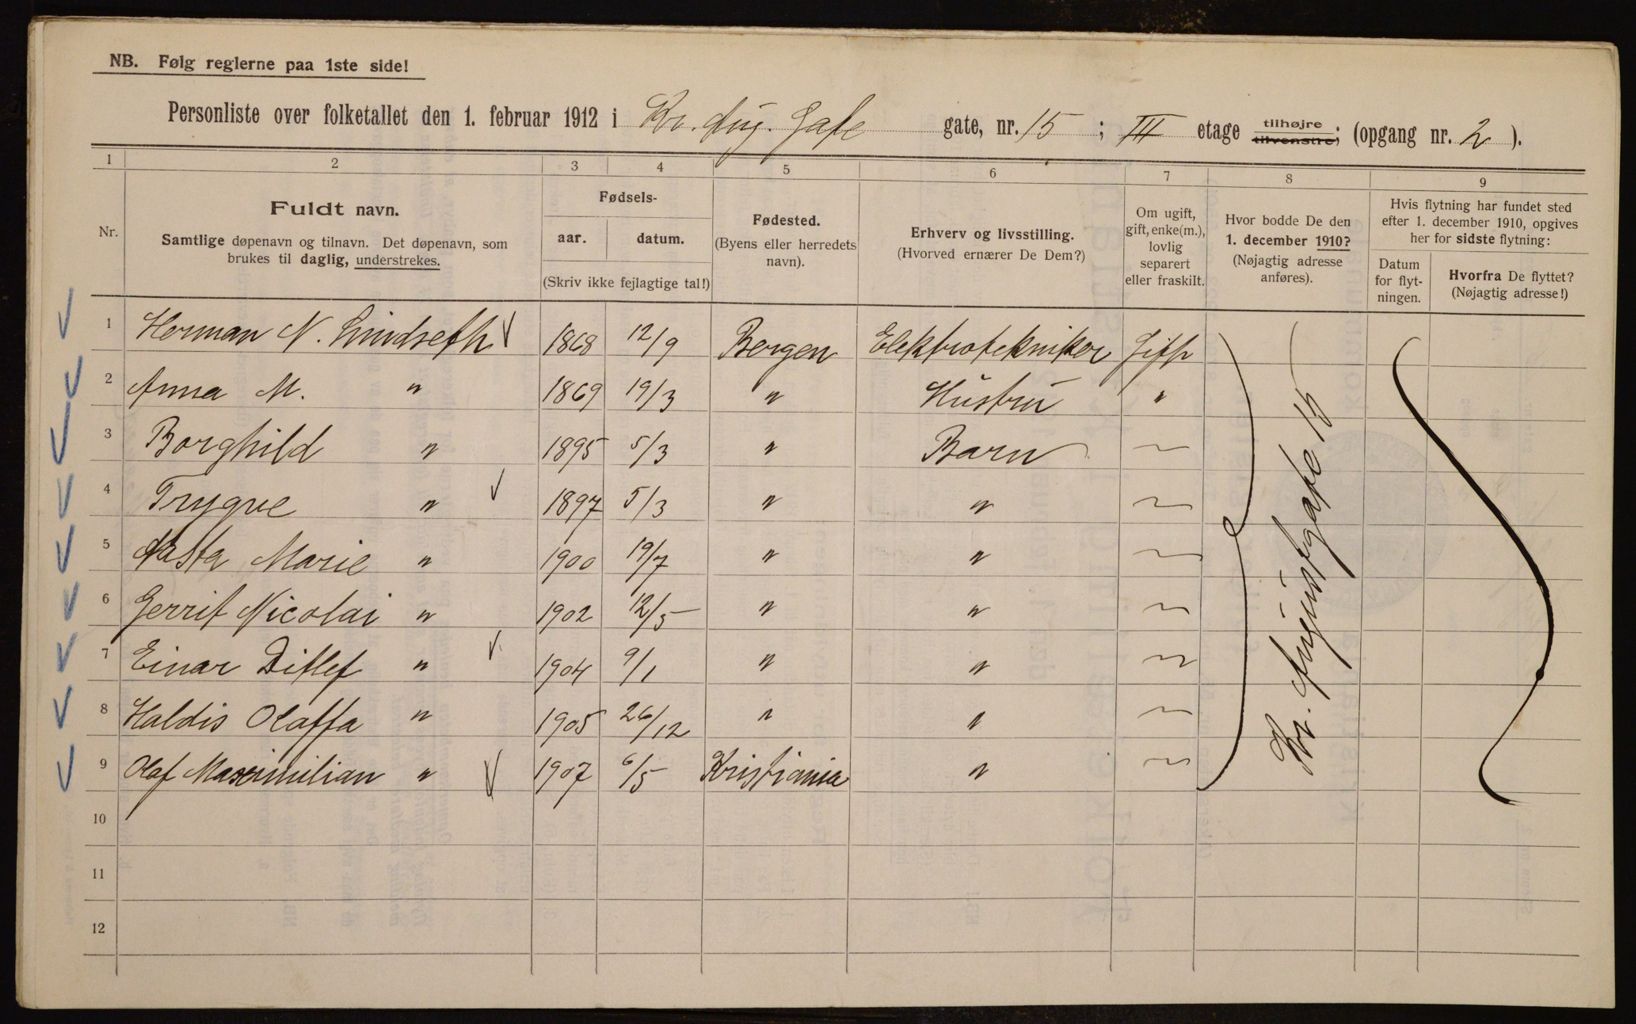 NB. Følg reglerne paa 1ste side!
Personliste over folketallet den 1. februar 1912 i Kr. Aug. Gate gate, nr. 15 ; III etage tilhøjre tilvenstre; (opgang nr. 2 ).
1 2 3 4 5 6 7 8 9
Nr.
Fuldt navn.
Samtlige døpenavn og tilnavn. Det døpenavn, som
brukes til daglig, understrekes.
Fødsels-
aar. datum.
(Skriv ikke fejlagtige tal!)
Fødested.
(Byens eller herredets
navn).
Erhverv og livsstilling.
(Hvorved ernærer De Dem?)
Om ugift,
gift, enke(m.),
lovlig
separert
eller fraskilt.
Hvor bodde De den
1. december 1910?
(Nøjagtig adresse
anføres).
Hvis flytning har fundet sted
efter 1. december 1910, opgives
her for sidste flytning:
Datum
for flyt-
ningen.
Hvorfra De flyttet?
(Nøjagtig adresse!)
1 Herman N. Lindseth 1868 12/9 Bergen Elektrotekniker Gift
2 Anna M. " 1869 19/3 " Hustru "
3 Borghild " 1895 5/3 " Barn
4 Trygve " 1897 5/3 " "
5 Aasta Marie " 1900 19/7 " "
6 Gerrit Nicolai " 1902 12/5 " "
7 Einar Ditlef " 1904 9/1 " "
8 Haldis Olaffa " 1905 26/12 " "
9 Olaf Maximilian " 1907 6/5 Kristiania "
Kr. Augustgate 15
10
11
12